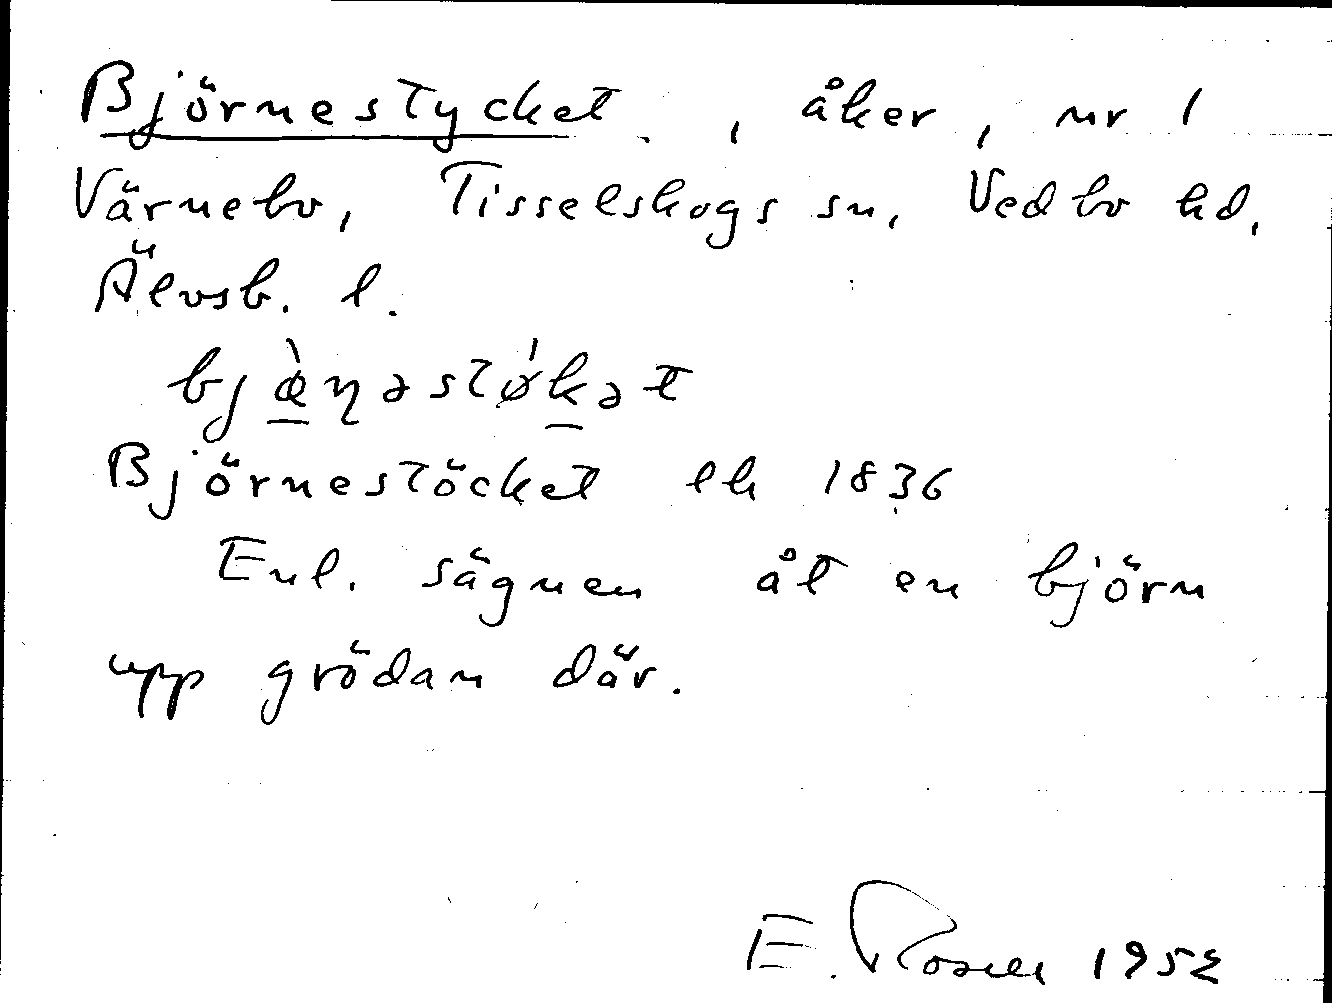 Björnestycket, åker, nr 1
Värnebo, Tisselskogs sn, Vedbo hd,
Älvsb. l.
bjæ̀ꞃəstǿkət
Björnestöcket lh 1836
Enl. sägnen åt en björn
upp grödan där.
E. Rosell 1952